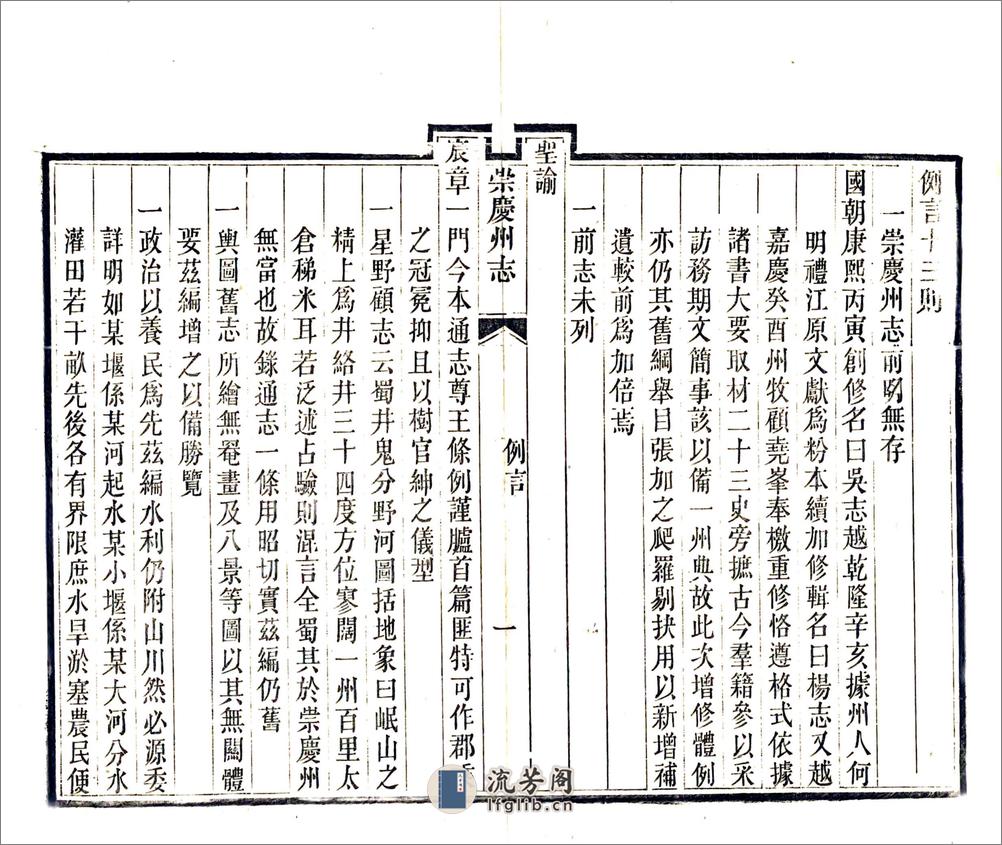 例言十三則
一崇慶州志前明無存
國朝康熙丙寅創修名曰吳志越乾隆辛亥據州人何
明禮江原文獻爲粉本續加修輯名曰楊志又越
嘉慶癸酉州牧顧堯峯奉檄重修恪遵格式依據
諸書大要取材二十三史旁摭古今羣籍參以采
訪務期文簡事該以備一州典故此次增修體例
亦仍其舊綱舉目張加之爬羅剔抉用以新增補
遺較前爲加倍焉
一前志未列
聖諭
崇慶州志
例言
一
宸章一門今本通志尊王條例謹臚首篇匪特可作郡
之冠冕抑且以樹官紳之儀型
一星野顧志云蜀井鬼分野河圖括地象曰岷山之
精上爲井絡井三十四度方位寥闊一州百里太
倉稊米耳若泛述占驗則混言全蜀其於崇慶州
無當也故錄通志一條用昭切實茲編仍舊
一輿圖舊志所繪無罨畫及八景等圖以其無關體
要茲編增之以備勝覽
一政治以養民爲先茲編水利仍附山川然必源委
詳明如某堰係某河起水某小堰係某大河分水
灌田若干畝先後各有界限庶水旱淤塞農民便
流芳阁
lfglib.cn